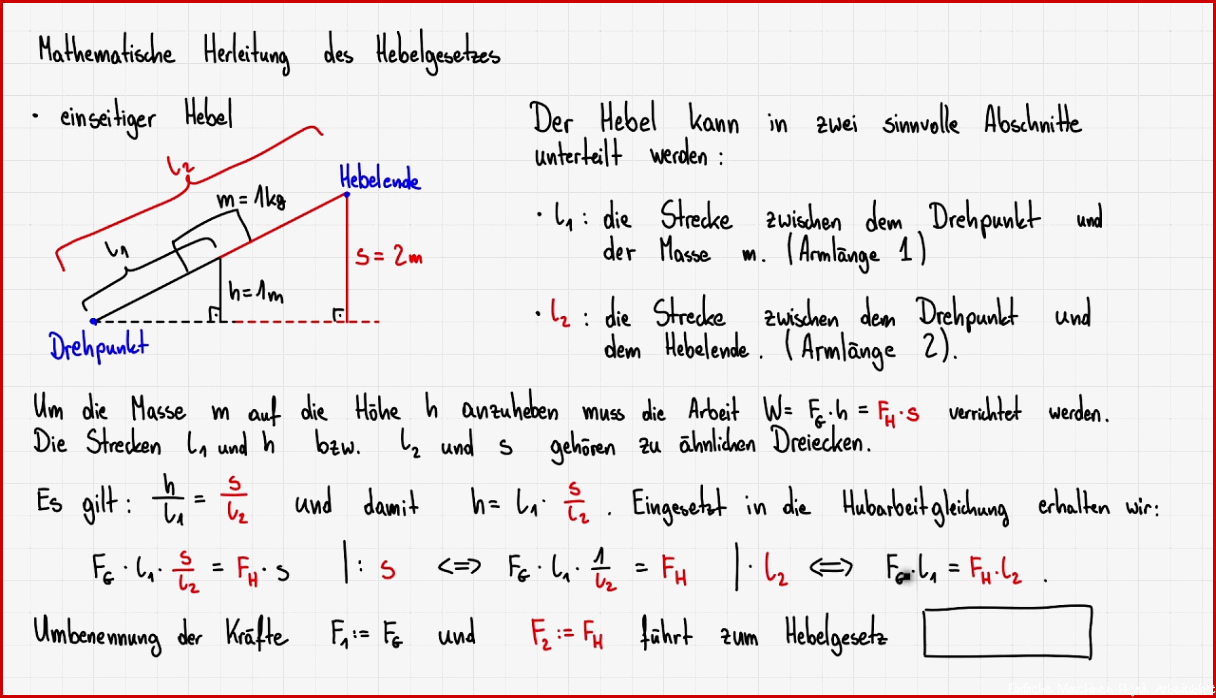 Mathematische Herleitung des Hebelgesetzes
· einseitiger Hebel
l₂
Hebelende
m = 1kg
l₁
s = 2m
h = 1m
Drehpunkt
Der Hebel kann in zwei sinnvolle Abschnitte
unterteilt werden :
· l₁ : die Strecke zwischen dem Drehpunkt und
der Masse m. (Armlänge 1)
· l₂ : die Strecke zwischen dem Drehpunkt und
dem Hebelende. (Armlänge 2).
Um die Masse m auf die Höhe h anzuheben muss die Arbeit W = F_G · h = F_H · s verrichtet werden.
Die Strecken l₁ und h bzw. l₂ und s gehören zu ähnlichen Dreiecken.
Es gilt : h/l₁ = s/l₂ und damit h = l₁ · s/l₂ . Eingesetzt in die Hubarbeitgleichung erhalten wir :
F_G · l₁ · s/l₂ = F_H · s | : s <=> F_G · l₁ · 1/l₂ = F_H | · l₂ <=> F_G · l₁ = F_H · l₂ .
Umbenennung der Kräfte F₁ := F_G und F₂ := F_H führt zum Hebelgesetz